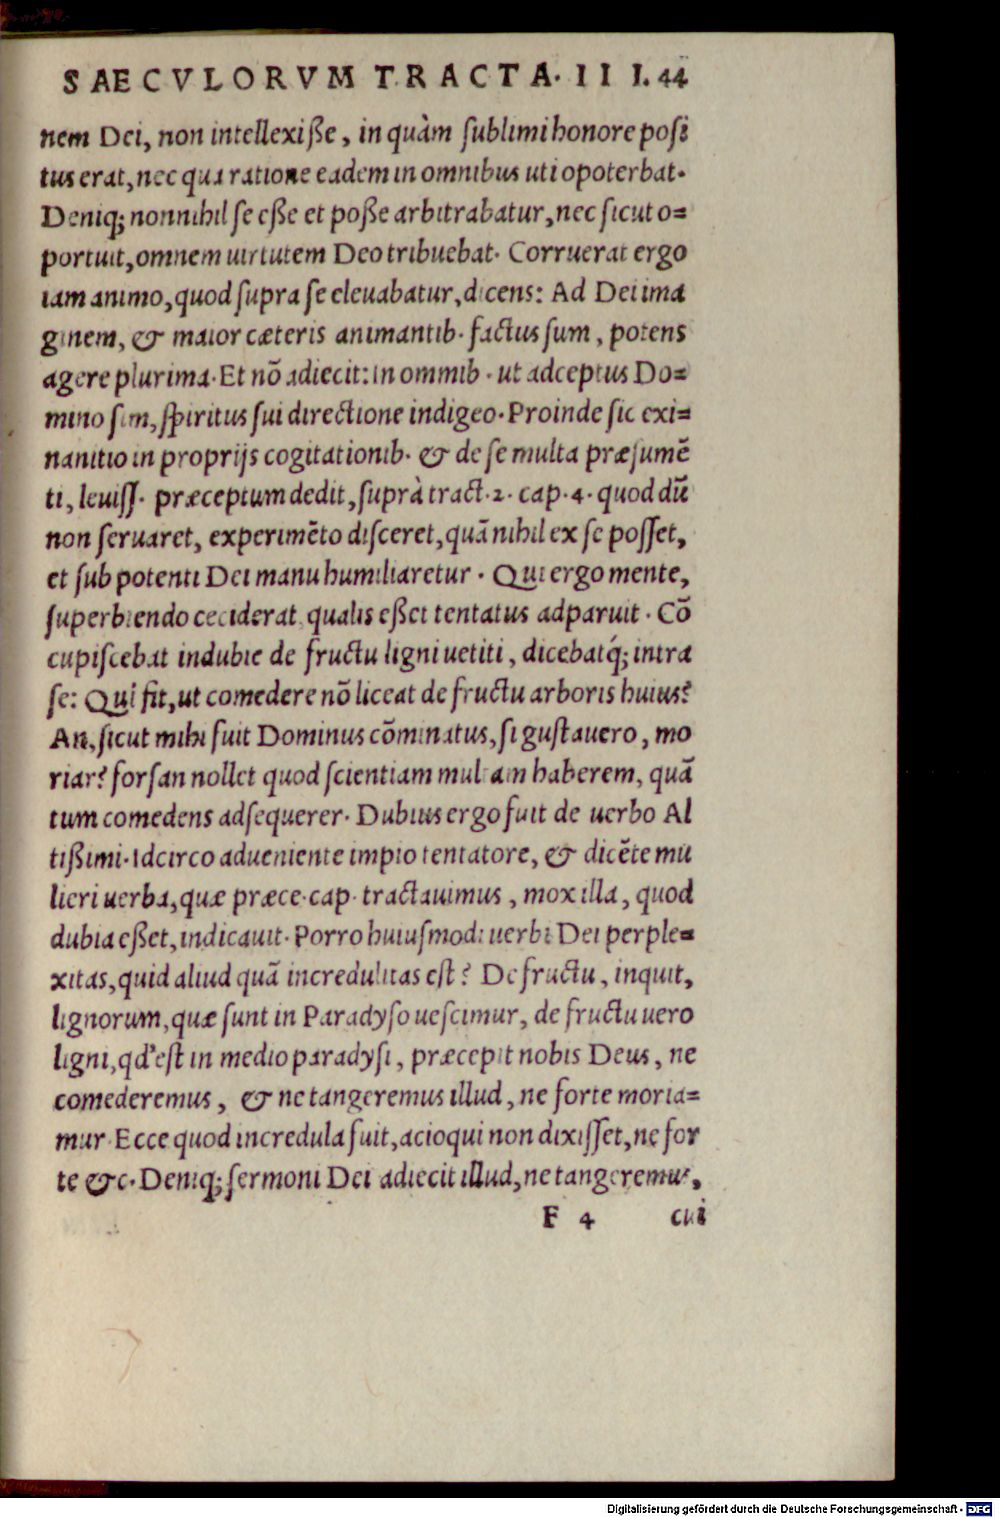 SAECVLORVM TRACTA. III. 44
nem Dei, non intellexiße, in quàm sublimi honore posi
tus erat, nec qua ratione eadem in omnibus uti opoterbat.
Deniq; nonnihil se eße et poße arbitrabatur, nec sicut o=
portuit, omnem uirtutem Deo tribuebat. Corruerat ergo
iam animo, quod supra se eleuabatur, dicens: Ad Dei ima
ginem, & maior cæteris animantib. factus sum, potens
agere plurima. Et nõ adiecit: in ommib. ut adceptus Do=
mino sim, spiritus sui directione indigeo. Proinde sic exi=
nanitio in proprijs cogitationib. & de se multa præsumẽ
ti, leuiss. præceptum dedit, suprà tract. 2. cap. 4. quod dũ
non seruaret, experimẽto disceret, quã nihil ex se posset,
et sub potenti Dei manu humiliaretur. Qui ergo mente,
superbiendo ceciderat qualis eßet tentatus adparuit. Cõ
cupiscebat indubie de fructu ligni uetiti, dicebatq́; intra
se: Qui fit, ut comedere nõ liceat de fructu arboris huius?
An, sicut mihi fuit Dominus cõminatus, si gustauero, mo
riar? forsan nollet quod scientiam multam haberem, quã
tum comedens adsequerer. Dubius ergo fuit de uerbo Al
tißimi. Idcirco adueniente impio tentatore, & dicẽte mu
lieri uerba, quæ præce. cap. tractauimus, mox illa, quod
dubia eßet, indicauit. Porro huiusmodi uerbi Dei perple=
xitas, quid aliud quã incredulitas est? De fructu, inquit,
lignorum, quæ sunt in Paradyso uescimur, de fructu uero
ligni, qd' est in medio paradysi, præcepit nobis Deus, ne
comederemus, & ne tangeremus illud, ne forte moria=
mur. Ecce quod incredula fuit, acioqui non dixisset, ne for
te &c. Deniq; sermoni Dei adiecit illud, ne tangeremus,
F 4 cui
Digitalisierung gefördert durch die Deutsche Forschungsgemeinschaft - DFG